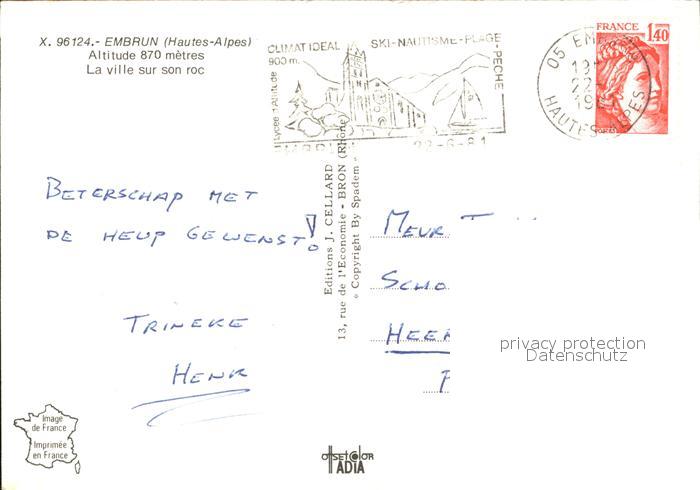 X. 96124.- EMBRUN (Hautes-Alpes)
Altitude 870 mètres
La ville sur son roc
CLIMAT IDEAL
900 m.
SKI-NAUTISME-PLAGE-PECHE
Lycée d'Altitude
22-6-81
05
HAUTES-ALPES
FRANCE
1,40
BETERSCHAP MET
DE HEUP GEWENST!
TRINEKE
HENK
Editions J. CELLARD
13, rue de l'Economie - BRON (Rhône)
« Copyright By Spadem »
MEVR
SCHO
HEER
privacy protection
Datenschutz
Image
de France
Imprimée
en France
offset color
ADIA